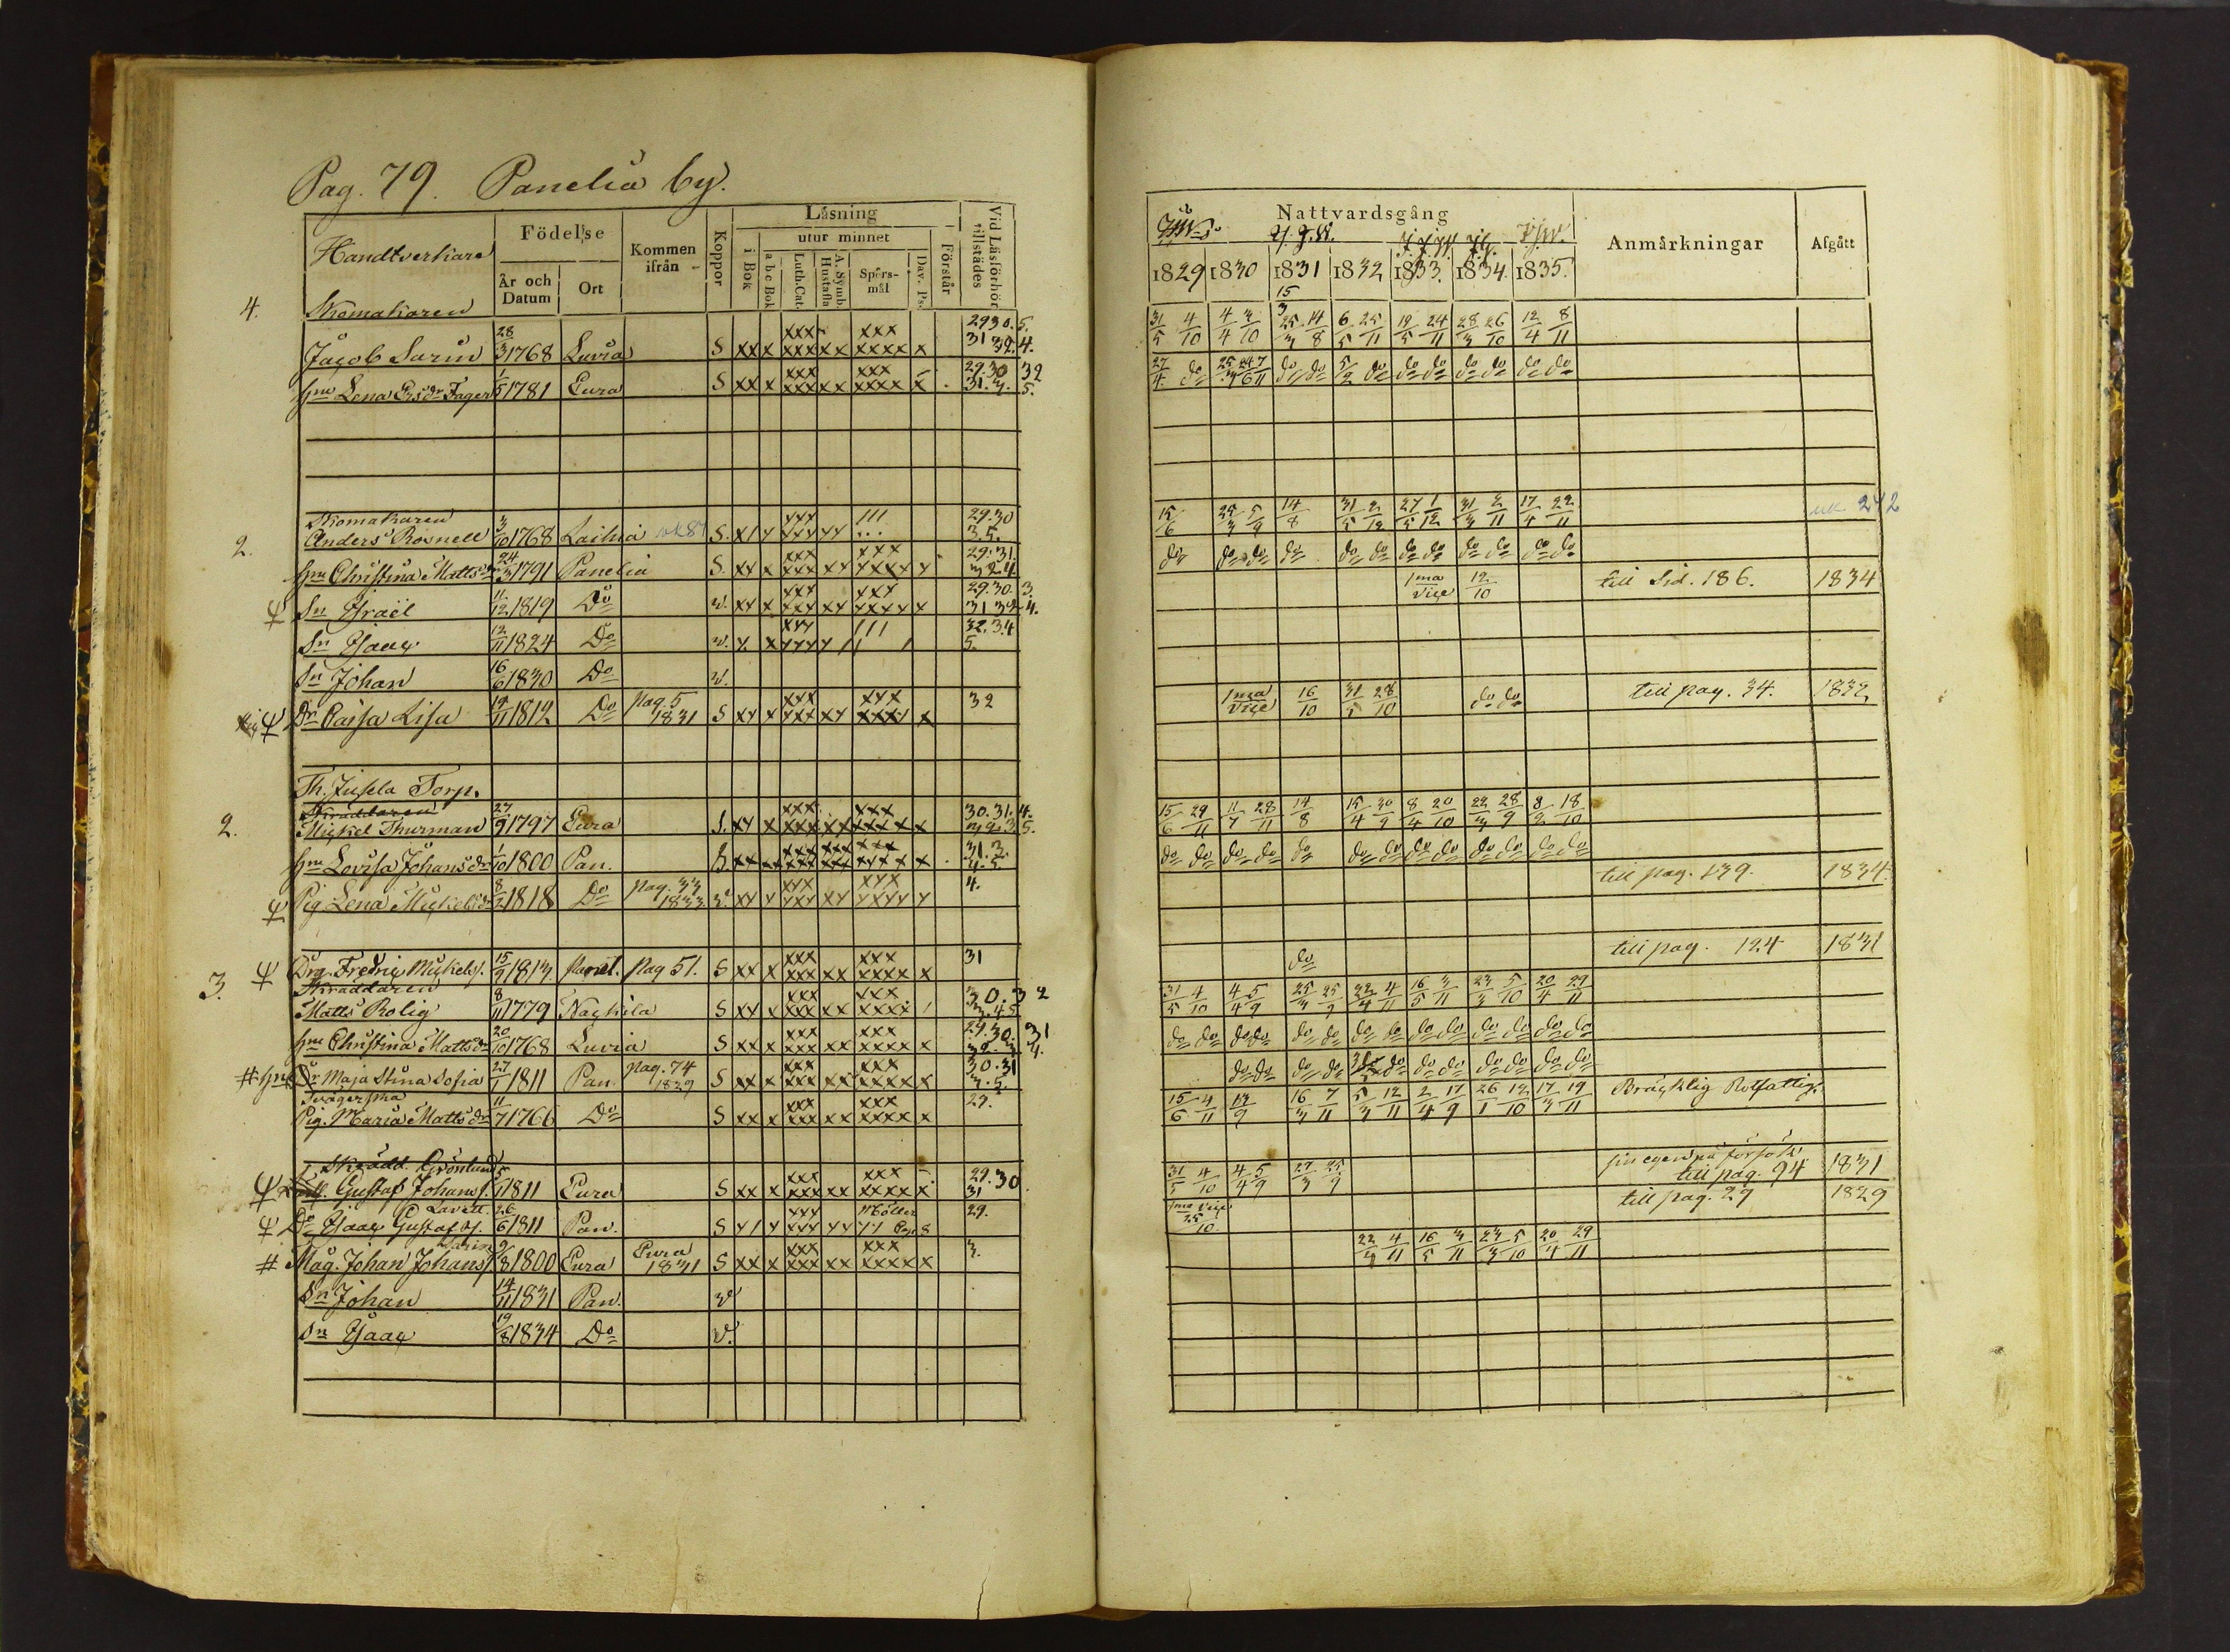 Pag. 79. Panelia by.
Handtverkare
Födelse
År och Datum
Ort
Kommen ifrån
Koppor
Läsning
i Bok
utur minnet
a b c Bok
Luth. Cat.
A. Symb. Hustafla
Spörs-mål
Dav. Ps.
Förstår
Vid Läsförhör tillstädes
Nattvardsgång
1829 1830 1831 1832 1833. 1834. 1835.
Anmärkningar
Afgått
4. Skomakaren
Jacob Sarin 28/3 1768 Luvia S xx x xxx xxx xx xxx xxxx x 29 30. 5. 31 32. 4. 31/5 4/10 4/4 3/10 15/3 25/3 14/8 6/5 25/11 19/5 24/11 28/3 26/10 12/4 8/11
hu Lena Ersdr Fager 1/5 1781 Eura S xx x xxx xxx xx xxx xxxx x 29. 30 32 31. 4. 5. 27/4 do do do do do do do do do do
Skomakaren
2. Anders Rosnell 3/10 1768 Laihia S. 29. 30 3. 5. 15/6 25/3 14/8 31/5 2/12 27/5 1/12 31/3 2/11 17/4 22/11 242
hu Christina Mattsdr 24/3 1791 Panelia S. 29. 31. 32 4 do do do do do do do do do do do do
Sn Israël 11/12 1819 Do v. 29. 30. 3. 31 32 4. 1ma Vice 12/10 till Sid. 186. 1834
Sn Isaac 12/11 1824 Do v. 32. 34 5.
Sn Johan 16/6 1830 Do v.
Dr Caisa Lisa 19/11 1812 Do pag. 5 1831 S 32 1ma Vice 16/10 31/5 28/10 do do till pag. 34. 1832
Th. Jusela Torp.
Skräddaren
2. Mickel Thurman 27/9 1797 Eura S. 30. 31. 4. 32. 3. 5. 15/6 29/11 11/7 28/11 14/8 15/4 30/9 8/4 20/10 22/3 28/9 8/2 18/10
hu Lovisa Johansdr 1/10 1800 Pan. 31. 3. 4. 5. do do do do do do do do do do do do do
Pig Lena Mickelsdr 8/2 1818 Do pag. 33 1833 v. 4. till pag. 139. 1834.
Drg. Fredric Mickelss. 15/9 1813 Panel. Pag 51. S 31 do till pag. 124 1831
Skräddaren
3. Matts Rolig 8/11 1779 Nackila S 30. 32 3. 4 5 31/5 4/10 4/4 5/9 25/3 25/9 22/4 4/11 16/5 3/11 23/3 5/10 20/4 29/11
hu Christina Mattsdr 20/10 1768 Luvia S 29. 30. 31 32. 3 4. do do do do do do do do do do do do do do
Dr Maja Stina Sofia 27/1 1811 Pan. pag. 74 1829 S 30. 31 3. 5. do do do do do do do do do do do
Svägerska
Pig. Maria Mattsdr 11/7 1766 Do S 29. 15/6 4/11 19/9 16/3 7/11 5/3 12/11 2/4 17/9 26/1 12/10 17/3 19/11 Bräcklig Rotfattig.
Skrädd. Grönlund
Gustaf Johanss. 5/6 1811 Eura S 29. 30 31 31/5 4/10 4/4 5/9 27/3 25/9 på försök till pag. 94 1831
Lavell.
Do Isaac Gustafss. 26/6 1811 Pan. S 29. 1ma vice 25/10 till pag. 29 1829
Sarin
Måg. Johan Johanss. 9/8 1800 Eura Eura 1831 S 3. 22/3 4/11 16/5 3/11 23/3 5/10 20/4 29/11
Sn Johan 14/11 1831 Pan. v
Sn Isaac 19/8 1834 Do v.